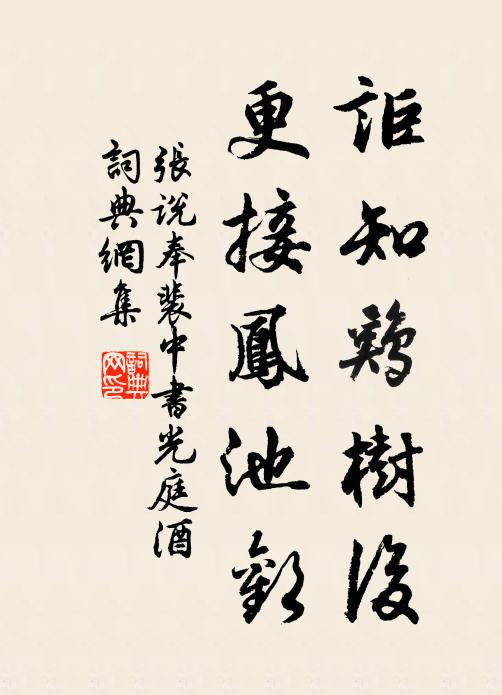 詎知鷄樹後
更接鳳池歡
張説奉裴中書光庭酒
詞典網集
詞典
网印